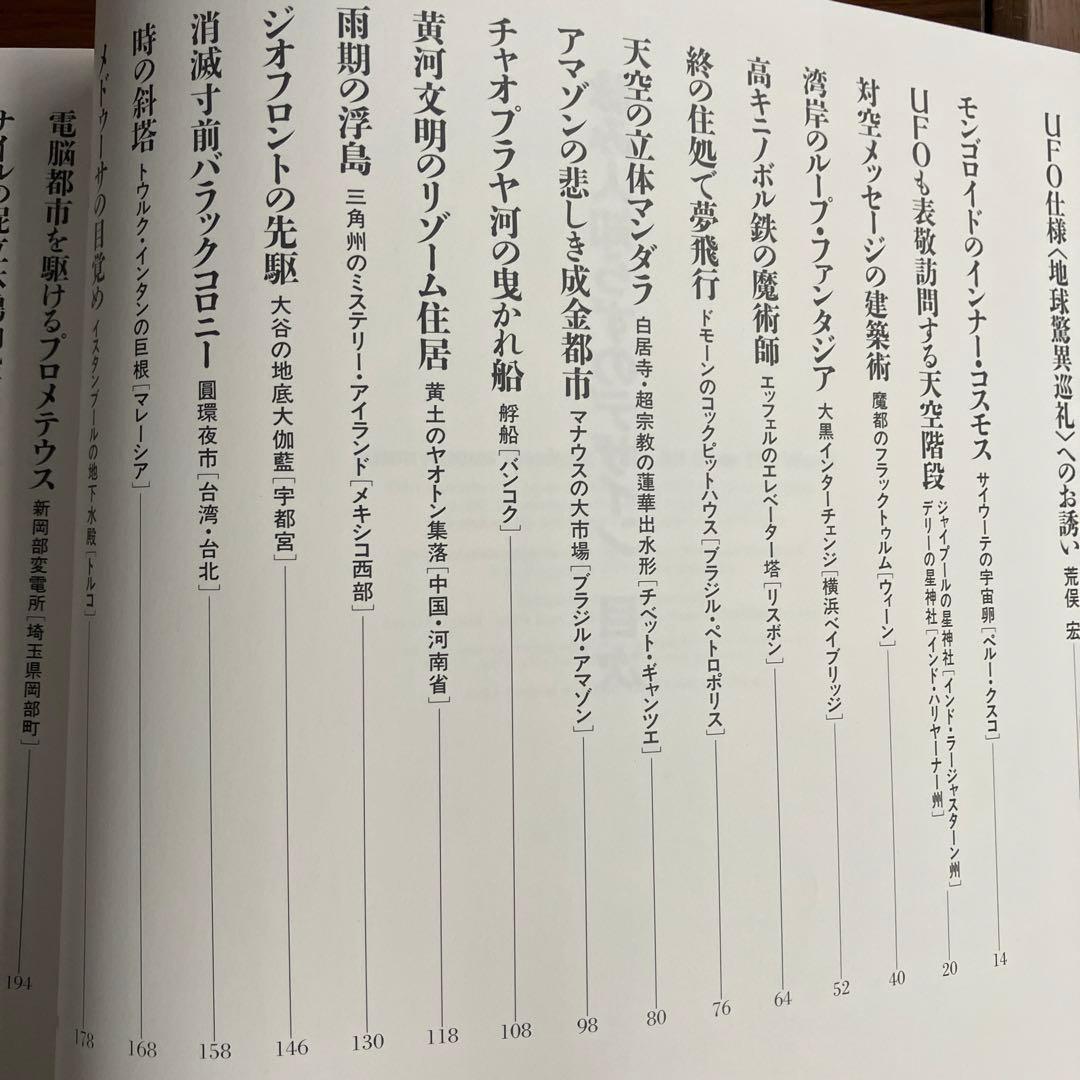 UFO仕様〈地球驚異巡礼〉へのお誘い 荒俣 宏
モンゴロイドのインナー・コスモス サイウーテの宇宙卵［ペルー・クスコ］ 14
UFOも表敬訪問する天空階段 ジャイプールの星神社［インド・ラージャスターン州］ 20
デリーの星神社［インド・ハリヤーナー州］
対空メッセージの建築術 魔都のフラックトゥルム［ウィーン］ 40
湾岸のループ・ファンタジア 大黒インターチェンジ［横浜ベイブリッジ］ 52
高キニノボル鉄の魔術師 エッフェルのエレベーター塔［リスボン］ 64
終の住処で夢飛行 ドモーンのコックピットハウス［ブラジル・ペトロポリス］ 76
天空の立体マンダラ 白居寺・超宗教の蓮華出水形［チベット・ギャンツエ］ 80
アマゾンの悲しき成金都市 マナウスの大市場［ブラジル・アマゾン］ 98
チャオプラヤ河の曳かれ船 艀船［バンコク］ 108
黄河文明のリゾーム住居 黄土のヤオトン集落［中国・河南省］ 118
雨期の浮島 三角州のミステリー・アイランド［メキシコ西部］ 130
ジオフロントの先駆 大谷の地底大伽藍［宇都宮］ 146
消滅寸前バラックコロニー 圓環夜市［台湾・台北］ 158
時の斜塔 トウルク・インタンの巨根［マレーシア］ 168
メドゥーサの目覚め イスタンブールの地下水殿［トルコ］ 178
電脳都市を駆けるプロメテウス 新岡部変電所［埼玉県岡部町］ 194